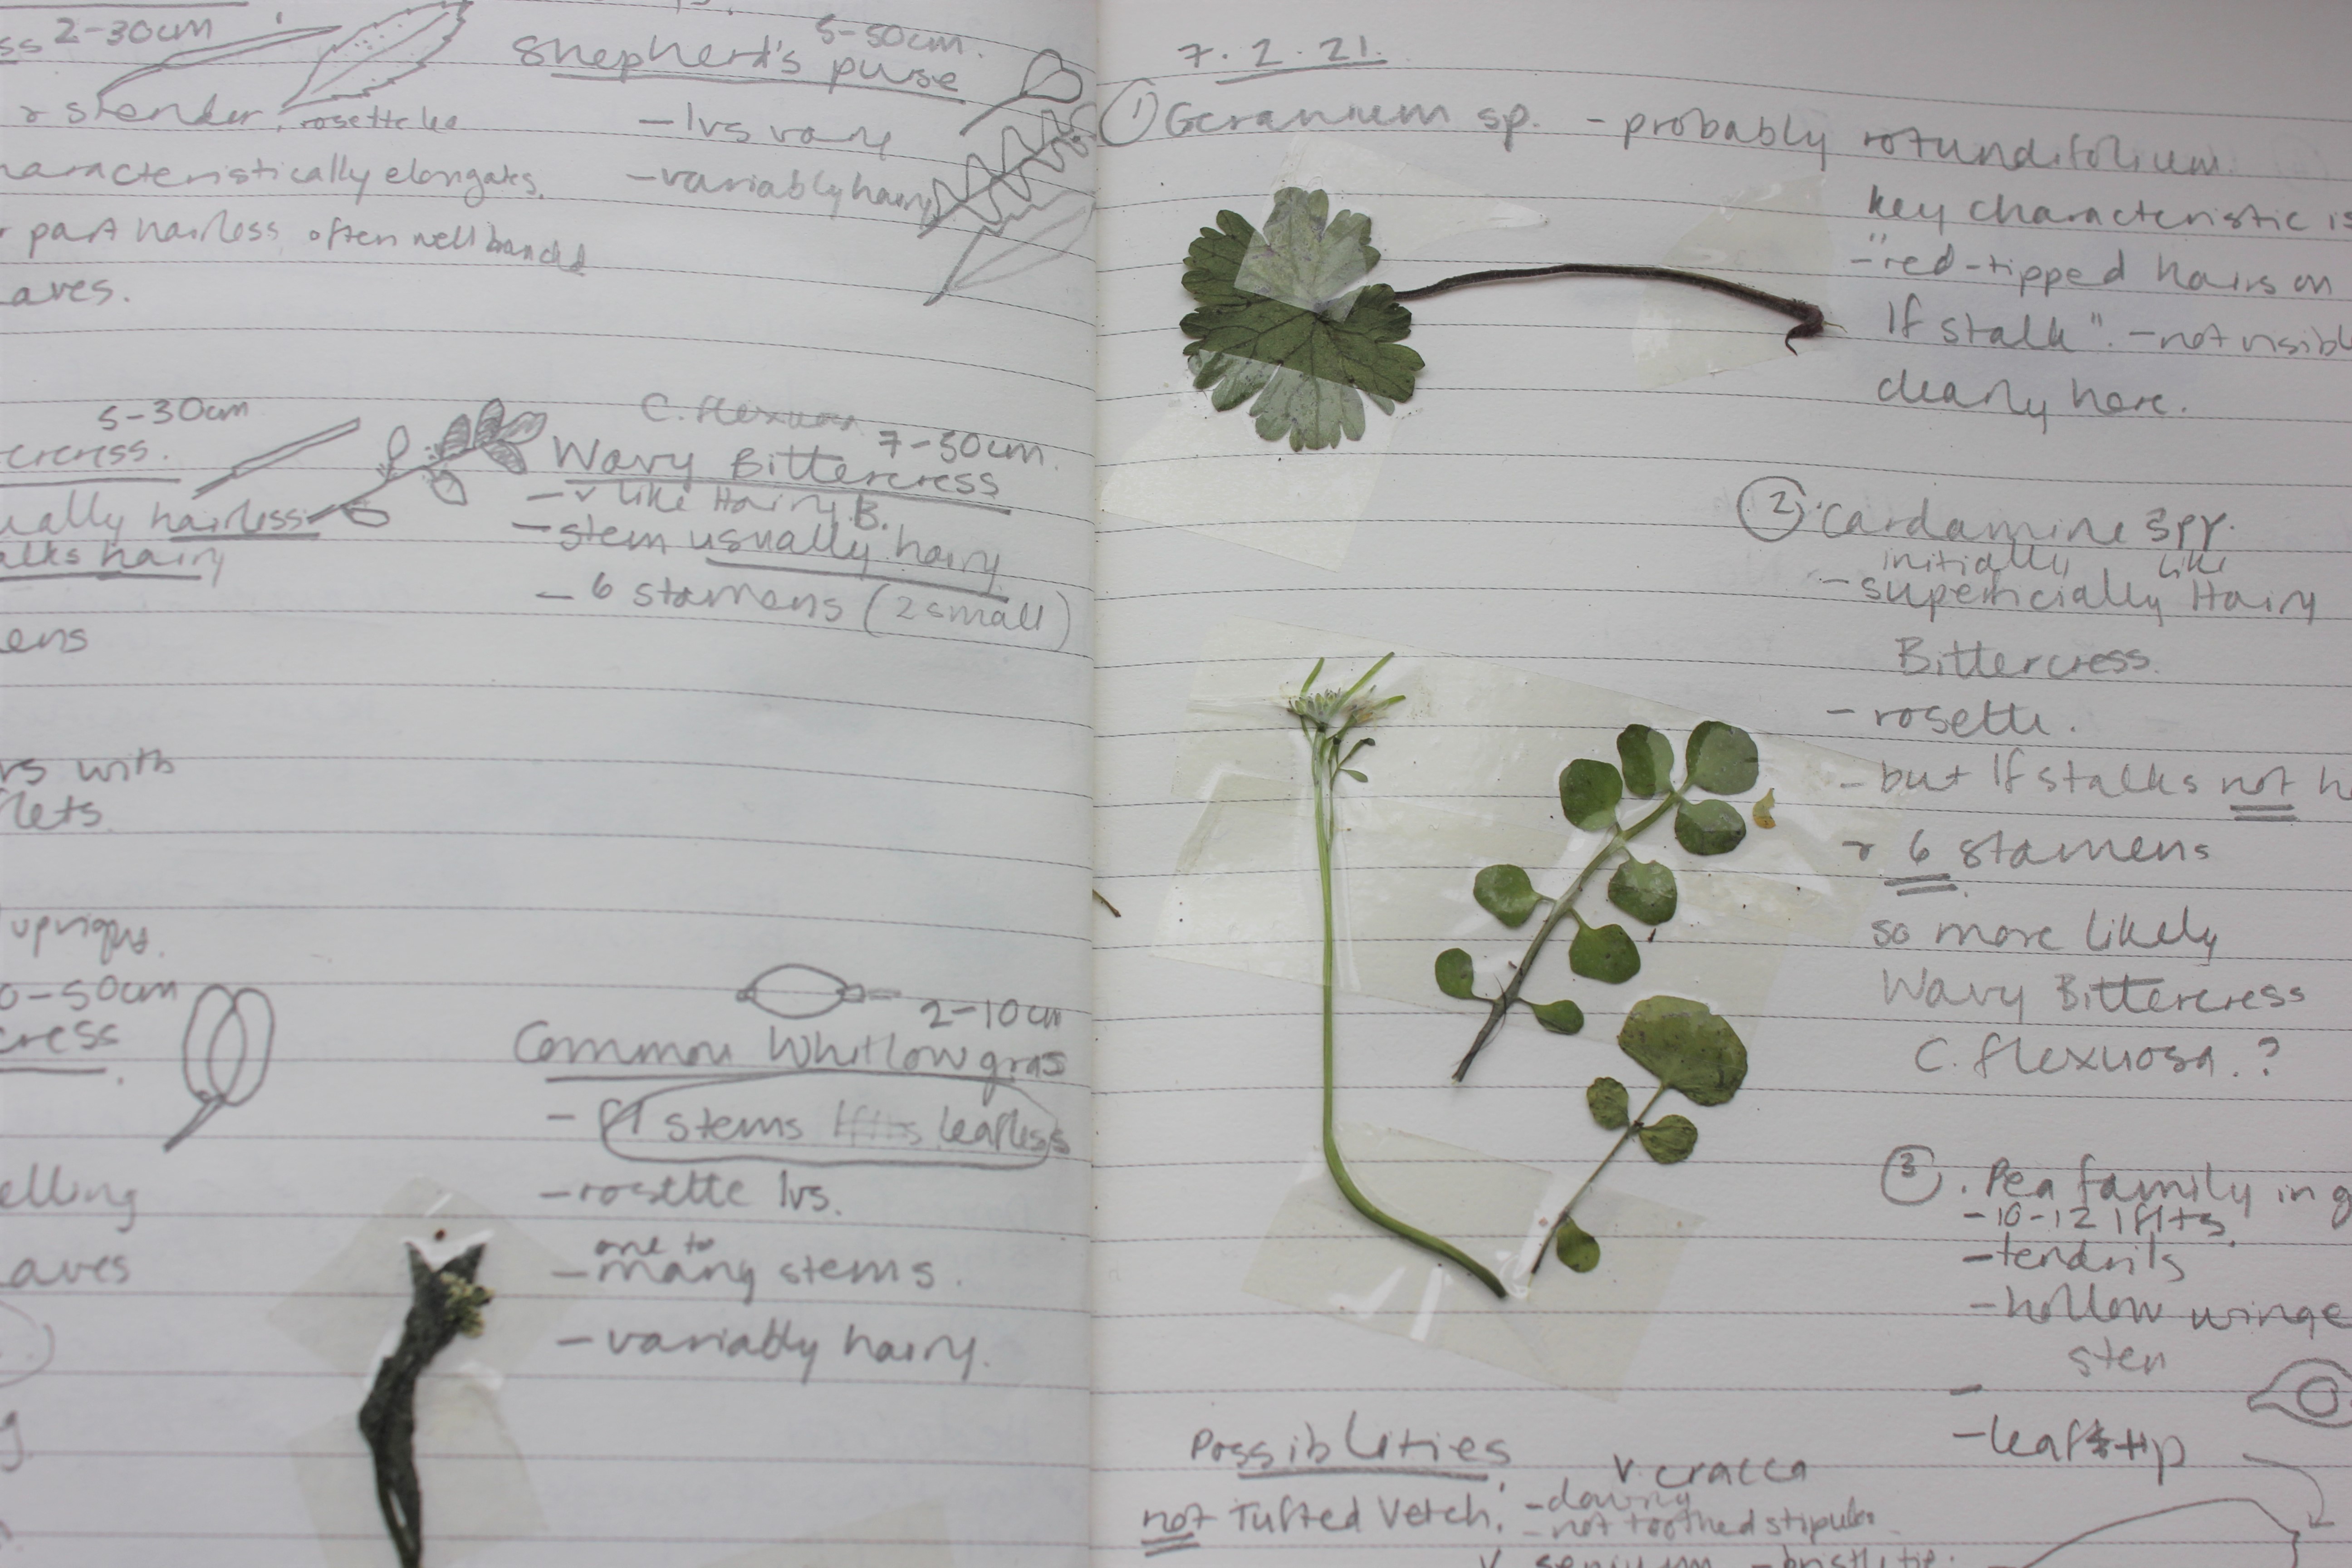 2-30cm
slender, rosette
characteristically elongates.
part hairless, often well
aves.
5-50cm.
Shepherd's purse
- lvs vary
- variably hairy
5-30cm
ercress.
ually hairless
alks hairy
ens
rs with
flets
upright.
0-50cm
cress.
elling
aves
C. flexuosa
7-50cm.
Wavy Bittercress
- v like Hairy B.
- stem usually hairy
- 6 stamens (2 small)
2-10cm
Common Whitlowgrass
- fl stems leafless
- rosette lvs.
one to
- many stems.
- variably hairy.
7.2.21.
① Geranium sp. - probably rotundifolium.
key characteristic is
- "red-tipped hairs on
lf stalk". - not visible
clearly here.
② Cardamine spp.
initially like
- superficially Hairy
Bittercress.
- rosette.
- but lf stalks not h
& 6 stamens
so more likely
Wavy Bittercress
C. flexuosa.?
③. Pea family in g
- 10-12 lflts.
- tendrils
- hollow winge
stem
-
- leaf tip
Possiblities
not Tufted Vetch. V cracca
- downy
- not toothed stipules
V. sepium - bristle tip.